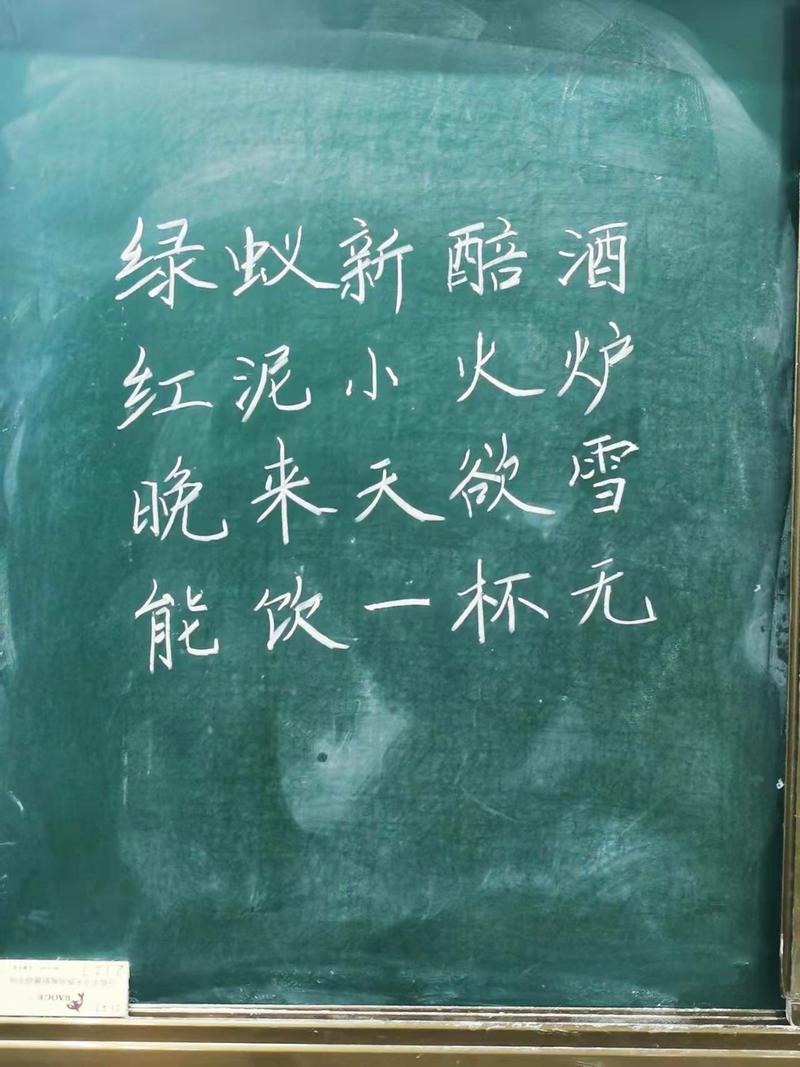 绿蚁新醅酒
红泥小火炉
晚来天欲雪
能饮一杯无
BAOGE